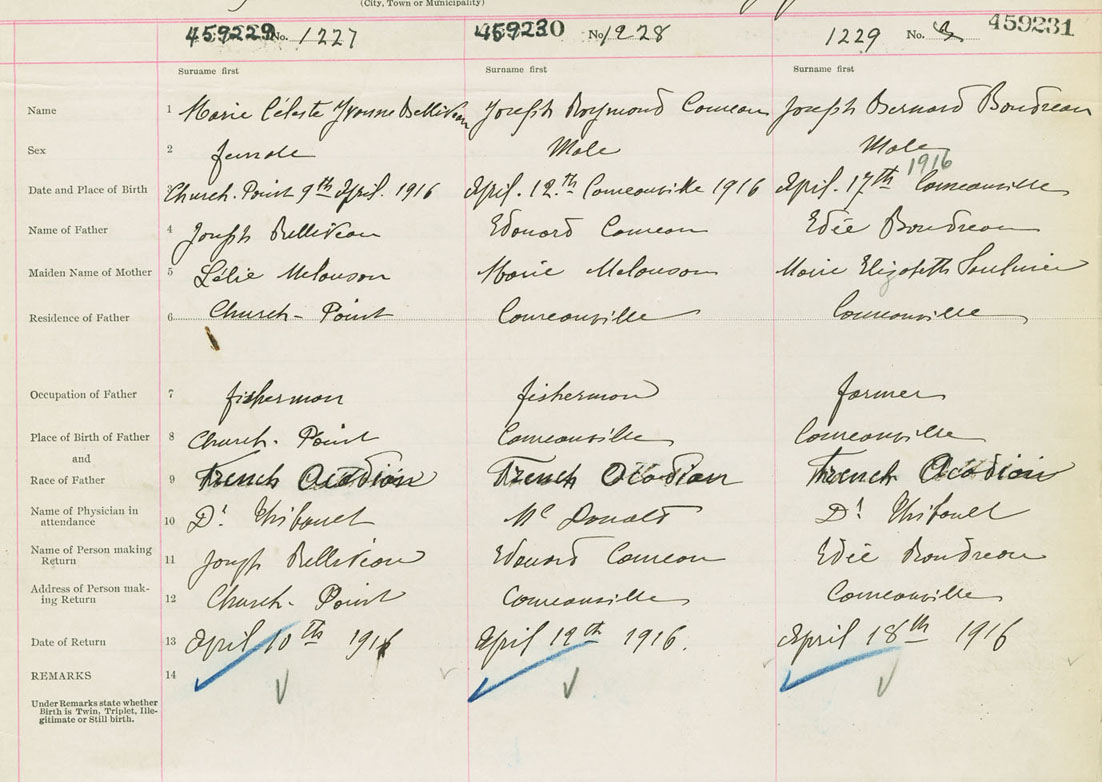 (City, Town or Municipality)
459229 No. 1227 459230 No. 1228 1229 No. 459231
Surname first Surname first Surname first
Name 1 Marie Céleste Yvonne Belliveau Joseph Raymond Comeau Joseph Bernard Boudreau
Sex 2 female Male Male
1916
Date and Place of Birth 3 Church. Point 9th April. 1916 April. 12.th Comeauville 1916 April. 17th Comeauville
Name of Father 4 Joseph Belliveau Edouard Comeau Edée Boudreau
Maiden Name of Mother 5 Lélie Melanson Marie Melanson Marie Elizabeth Saulnier
Residence of Father 6 Church - Point Comeauville Comeauville
Occupation of Father 7 fisherman fisherman farmer
Place of Birth of Father 8 Church. Point Comeauville Comeauville
and
Race of Father 9 French Acadian French Acadian French Acadian
Name of Physician in
attendance 10 Dr Thibault Mc Donald Dr Thibault
Name of Person making
Return 11 Joseph Belliveau Edouard Comeau Edée Boudreau
Address of Person mak-
ing Return 12 Church - Point Comeauville Comeauville
Date of Return 13 April 10th 1916 April 12th 1916. April 18th 1916
REMARKS 14
Under Remarks state whether
Birth is Twin, Triplet, Ille-
gitimate or Still birth.